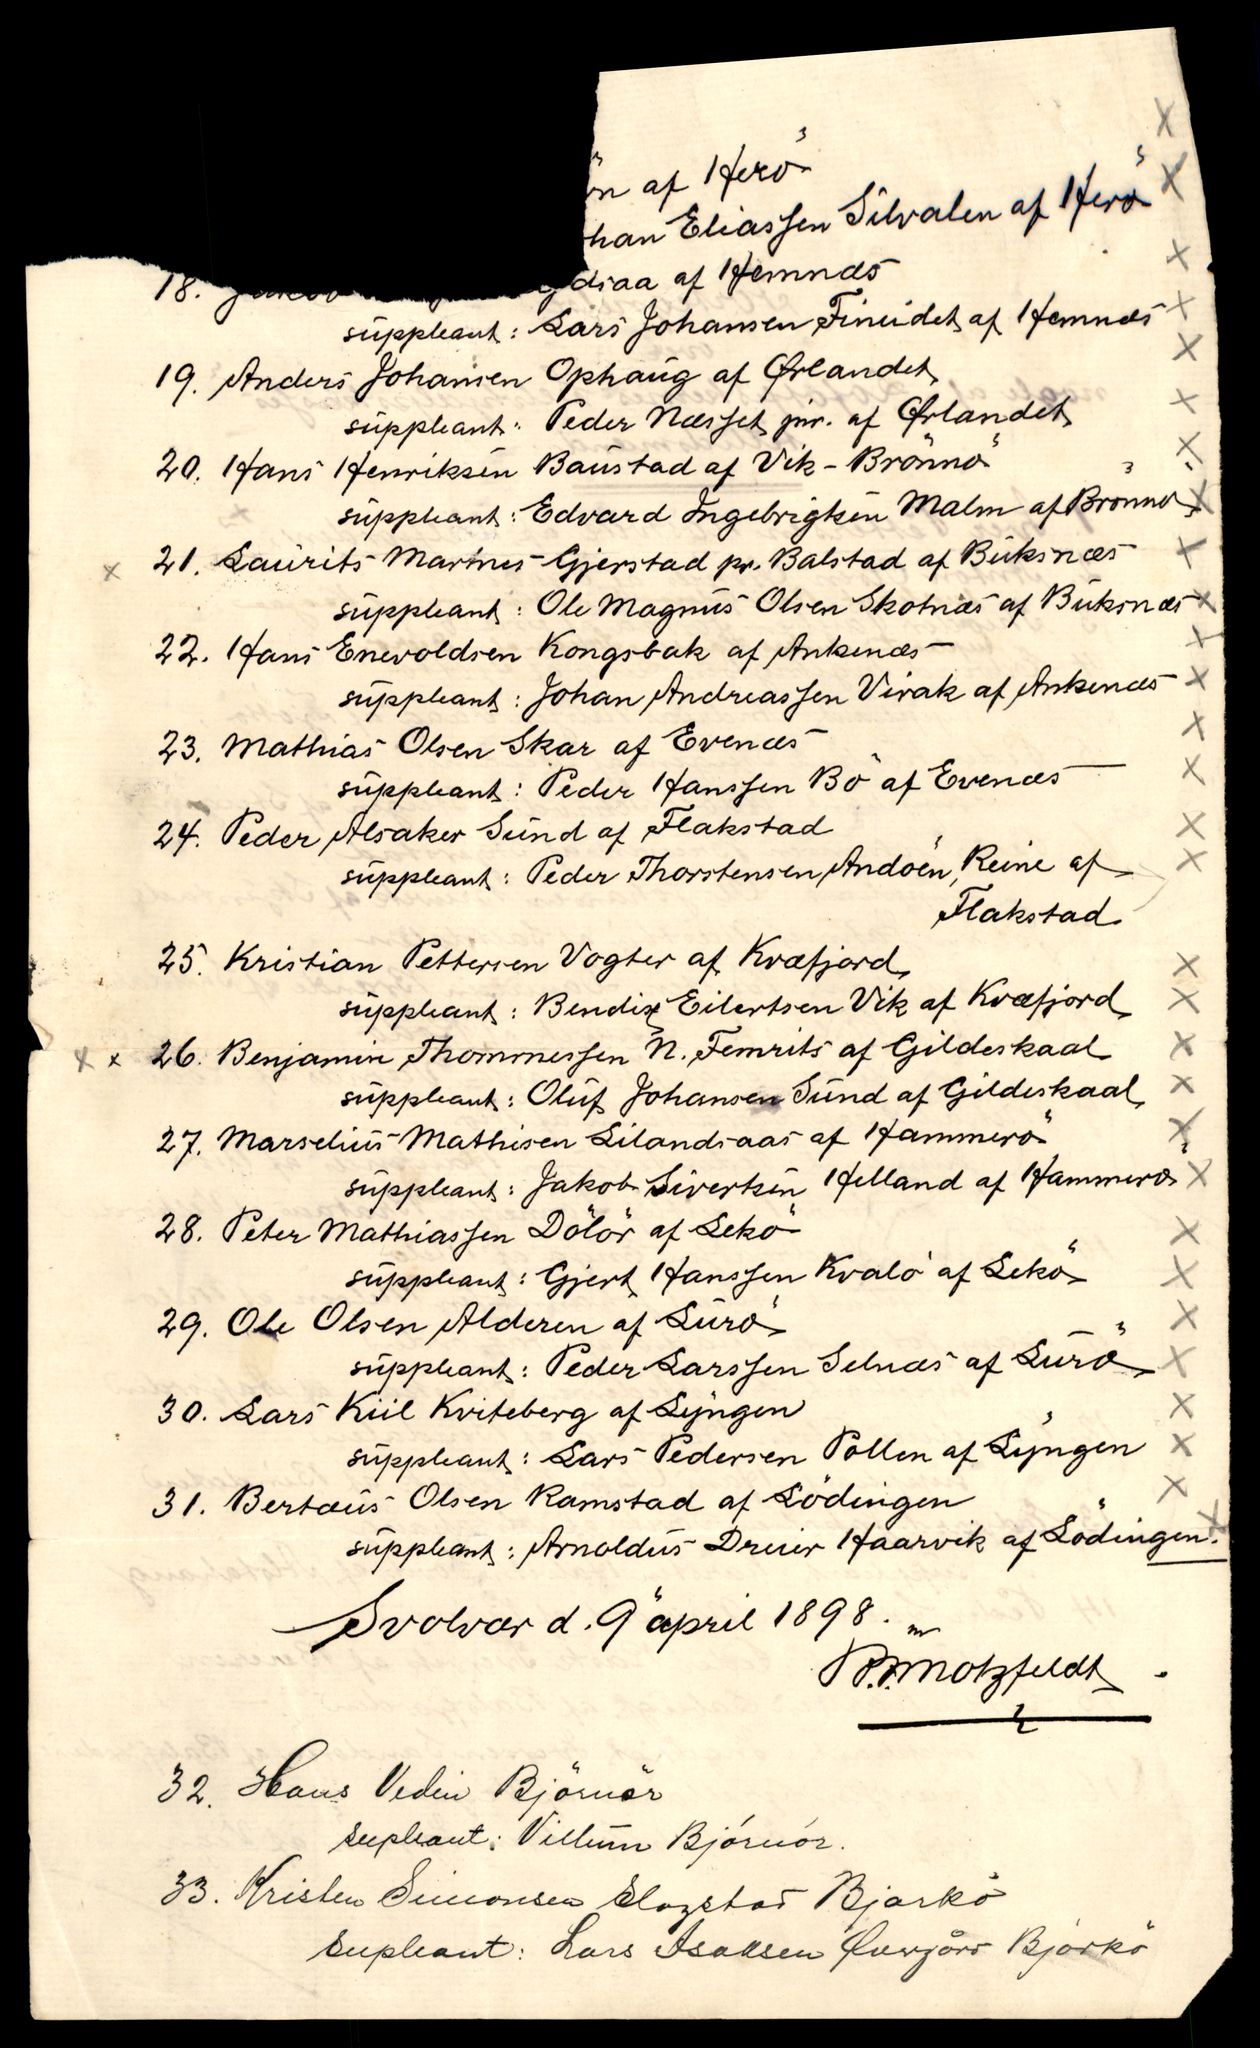 ön af Herö
han Eliassen Silvalen af Herö
18. dsaa af Hemnæs
suppleant: Lars Johansen Fineidet af Hemnæs
19. Anders Johansen Ophaug af Ørlandet
suppleant: Peder Næsset jnr. af Ørlandet
20. Hans Henriksen Baustad af Vik - Brönnö
suppleant: Edvard Ingebrigtsen Malm af Brönnö
21. Laurits Marius Gjerstad pr. Balstad af Buksnæs
suppleant: Ole Magnus Olsen Skotnæs af Buksnæs
22. Hans Enevoldsen Kongsbak af Ankenæs
suppleant: Johan Andreassen Virak af Ankenæs
23. Mathias Olsen Skar af Evenæs
suppleant: Peder Hanssen Bö af Evenæs
24. Peder Alsaker Sund af Flakstad
suppleant: Peder Thorstensen Andöen, Reine af
Flakstad
25. Kristian Pettersen Vogter af Kvæfjord
suppleant: Bendix Eilertsen Vik af Kvæfjord
26. Benjamin Thommessen N. Femris af Gildeskaal
suppleant: Oluf Johansen Sund af Gildeskaal
27. Marselius Mathisen Lilandsaas af Hammerö
suppleant: Jakob Sivertsen Helland af Hammerö
28. Peter Mathiassen Dölör af Lekö
suppleant: Gjert Hanssen Kvalö af Lekö
29. Ole Olsen Alderen af Lurö
suppleant: Peder Larssen Selnæs af Lurö
30. Lars Kiil Kviteberg af Lyngen
suppleant: Lars Pedersen Pollen af Lyngen
31. Bertæus Olsen Ramstad af Lödingen
suppleant: Arnoldus Dreier Haarvik af Lödingen.
Svolvær d. 9 april 1898.
P. F. Motzfeldt
32. Hans Vedin Björnör
supleant: Villum Björnör.
33. Kristen Simonsen Slagstad Bjarkö
supleant: Lars Isaksen Bjarkö